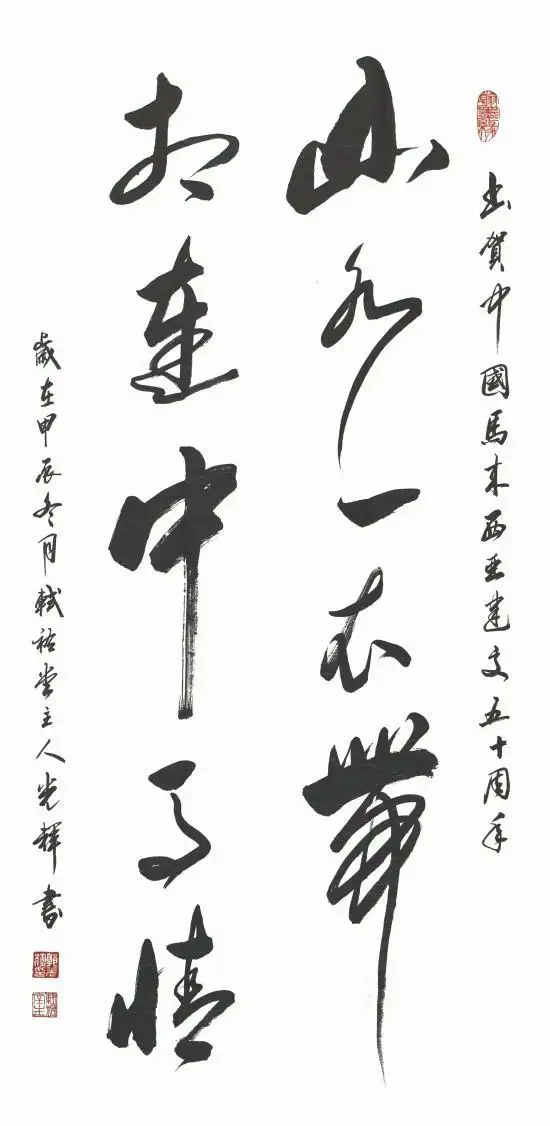 賀中國馬來西亞建交五十周年
山水一衣帶
相連中馬情
歲在甲辰冬月軾祐堂主人光輝書